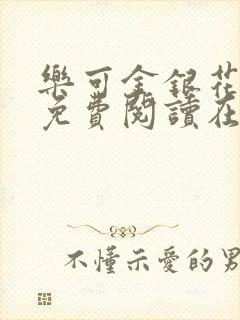 樂可金銀花
免費閱讀在
不懂示愛的男